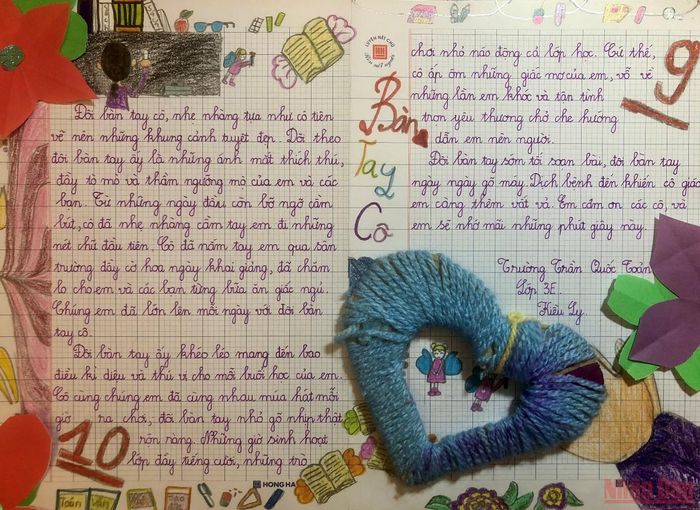 Đôi bàn tay cô, nhẹ nhàng tựa như cô tiên
vẽ nên những khung cảnh tuyệt đẹp. Dõi theo
đôi bàn tay ấy là những ánh mắt thích thú,
đầy tò mò và thầm ngưỡng mộ của em và các
bạn. Từ những ngày đầu còn bỡ ngỡ cầm
bút, cô đã nhẹ nhàng cầm tay em đi những
nét chữ đầu tiên. Cô đã nắm tay em qua sân
trường đầy cờ hoa ngày khai giảng, đã chăm
lo cho em và các bạn từng bữa ăn giấc ngủ.
Chúng em đã lớn lên mỗi ngày với đôi bàn
tay cô.
Đôi bàn tay ấy khéo léo mang đến bao
điều kì diệu và thú vị cho mỗi buổi học của em.
Cô cùng chúng em đã cùng nhau múa hát mỗi
giờ ra chơi, đôi bàn tay nhỏ gõ nhịp thật
rộn ràng. Những giờ sinh hoạt
lớp đầy tiếng cười, những trò
10
Toán Văn
HONG HA
LUYỆN NÉT CHỮ
Bàn
Tay
Cô
chơi nhỏ náo động cả lớp học. Cứ thế,
cô ấp ôm những giấc mơ của em, vỗ về
những lần em khóc và tận tình
trọn yêu thương chở che hướng
dẫn em nên người.
9
Đôi bàn tay sớm tối soạn bài, đôi bàn tay
ngày ngày gõ máy. Dịch bệnh đến khiến cô giáo
em càng thêm vất vả. Em cảm ơn các cô, và
em sẽ nhớ mãi những phút giây này.
Trường Trần Quốc Toản
Lớp 3E.
Kiều Ly.
Nhân Dân